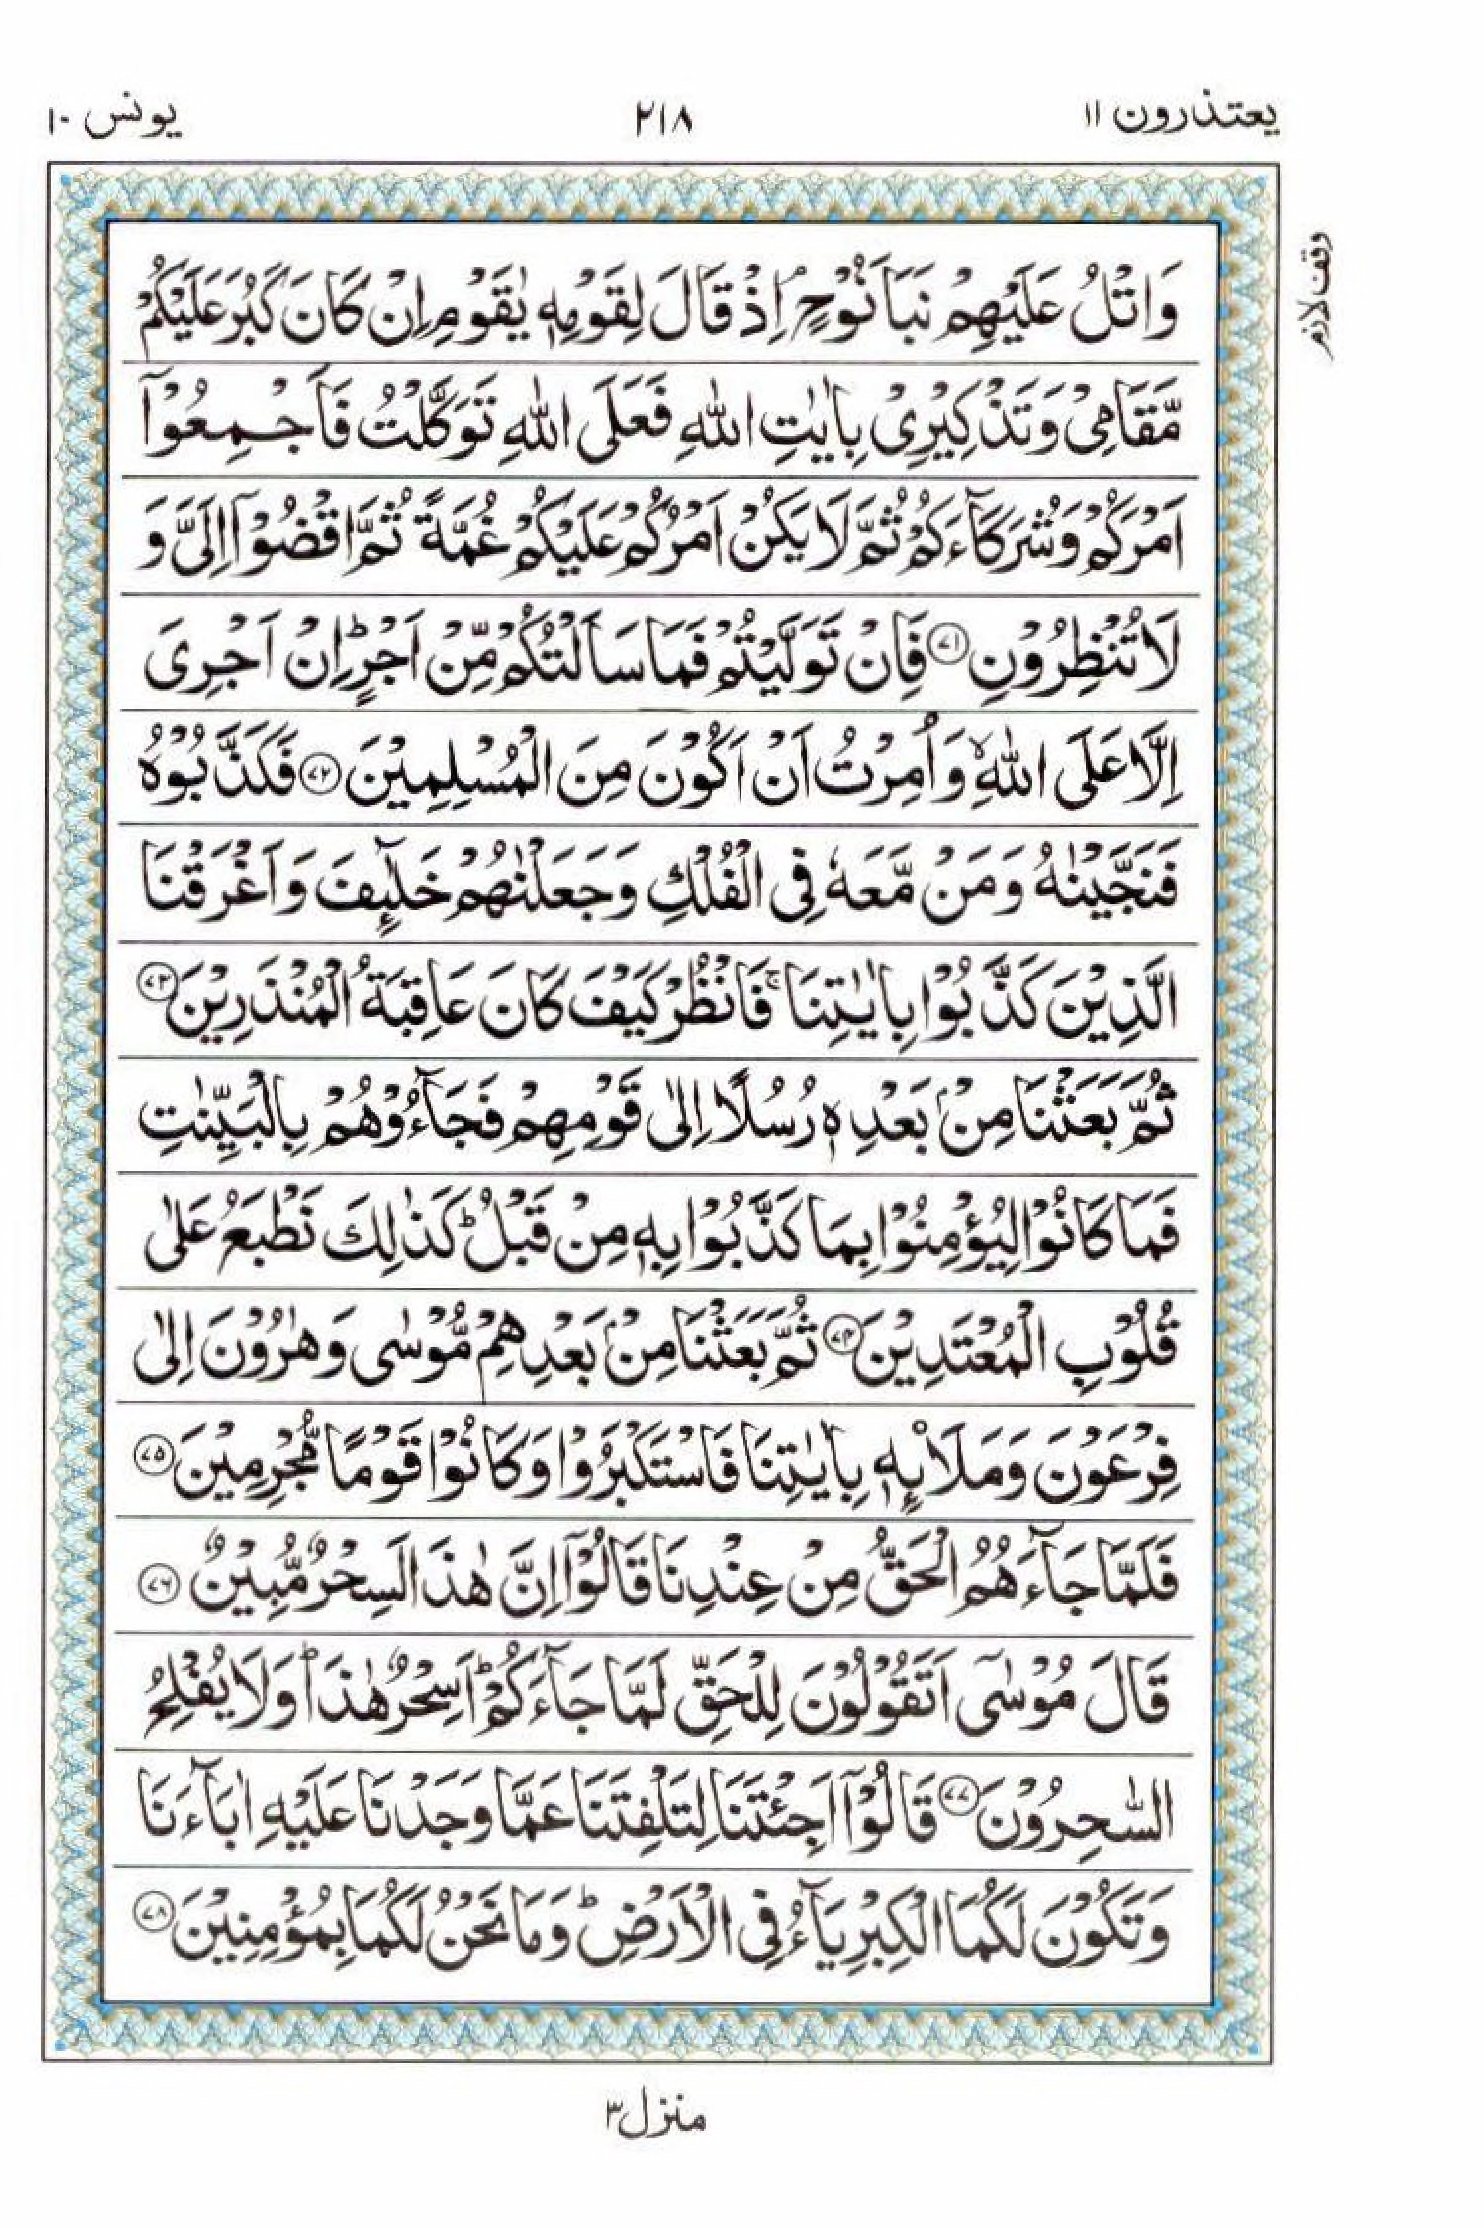 يعتذرون ١١
٢١٨
يونس ١٠
وقف لازم
وَاتْلُ عَلَيْهِمْ نَبَاَ نُوْحٍ ۘ اِذْ قَالَ لِقَوْمِهٖ يٰقَوْمِ اِنْ كَانَ كَبُرَ عَلَيْكُمْ
مَّقَامِيْ وَتَذْكِيْرِيْ بِاٰيٰتِ اللّٰهِ فَعَلَى اللّٰهِ تَوَكَّلْتُ فَاَجْمِعُوْۤا
اَمْرَكُمْ وَشُرَكَآءَكُمْ ثُمَّ لَا يَكُنْ اَمْرُكُمْ عَلَيْكُمْ غُمَّةً ثُمَّ اقْضُوْۤا اِلَيَّ وَ
لَا تُنْظِرُوْنِ ﴿٧١﴾ فَاِنْ تَوَلَّيْتُمْ فَمَا سَاَلْتُكُمْ مِّنْ اَجْرٍ ؕ اِنْ اَجْرِيَ
اِلَّا عَلَى اللّٰهِ ۙ وَاُمِرْتُ اَنْ اَكُوْنَ مِنَ الْمُسْلِمِيْنَ ﴿٧٢﴾ فَكَذَّبُوْهُ
فَنَجَّيْنٰهُ وَمَنْ مَّعَهٗ فِي الْفُلْكِ وَجَعَلْنٰهُمْ خَلٰٓئِفَ وَاَغْرَقْنَا
الَّذِيْنَ كَذَّبُوْا بِاٰيٰتِنَا ۚ فَانْظُرْ كَيْفَ كَانَ عَاقِبَةُ الْمُنْذَرِيْنَ ﴿٧٣﴾
ثُمَّ بَعَثْنَا مِنْۢ بَعْدِهٖ رُسُلًا اِلٰى قَوْمِهِمْ فَجَآءُوْهُمْ بِالْبَيِّنٰتِ
فَمَا كَانُوْا لِيُؤْمِنُوْا بِمَا كَذَّبُوْا بِهٖ مِنْ قَبْلُ ؕ كَذٰلِكَ نَطْبَعُ عَلٰى
قُلُوْبِ الْمُعْتَدِيْنَ ﴿٧٤﴾ ثُمَّ بَعَثْنَا مِنْۢ بَعْدِهِمْ مُّوْسٰى وَهٰرُوْنَ اِلٰى
فِرْعَوْنَ وَمَلَا۟ئِهٖ بِاٰيٰتِنَا فَاسْتَكْبَرُوْا وَكَانُوْا قَوْمًا مُّجْرِمِيْنَ ﴿٧٥﴾
فَلَمَّا جَآءَهُمُ الْحَقُّ مِنْ عِنْدِنَا قَالُوْۤا اِنَّ هٰذَا لَسِحْرٌ مُّبِيْنٌ ﴿٧٦﴾
قَالَ مُوْسٰۤى اَتَقُوْلُوْنَ لِلْحَقِّ لَمَّا جَآءَكُمْ ؕ اَسِحْرٌ هٰذَا ؕ وَلَا يُفْلِحُ
السّٰحِرُوْنَ ﴿٧٧﴾ قَالُوْۤا اَجِئْتَنَا لِتَلْفِتَنَا عَمَّا وَجَدْنَا عَلَيْهِ اٰبَآءَنَا
وَتَكُوْنَ لَكُمَا الْكِبْرِيَآءُ فِي الْاَرْضِ ؕ وَمَا نَحْنُ لَكُمَا بِمُؤْمِنِيْنَ ﴿٧٨﴾
منزل ٣